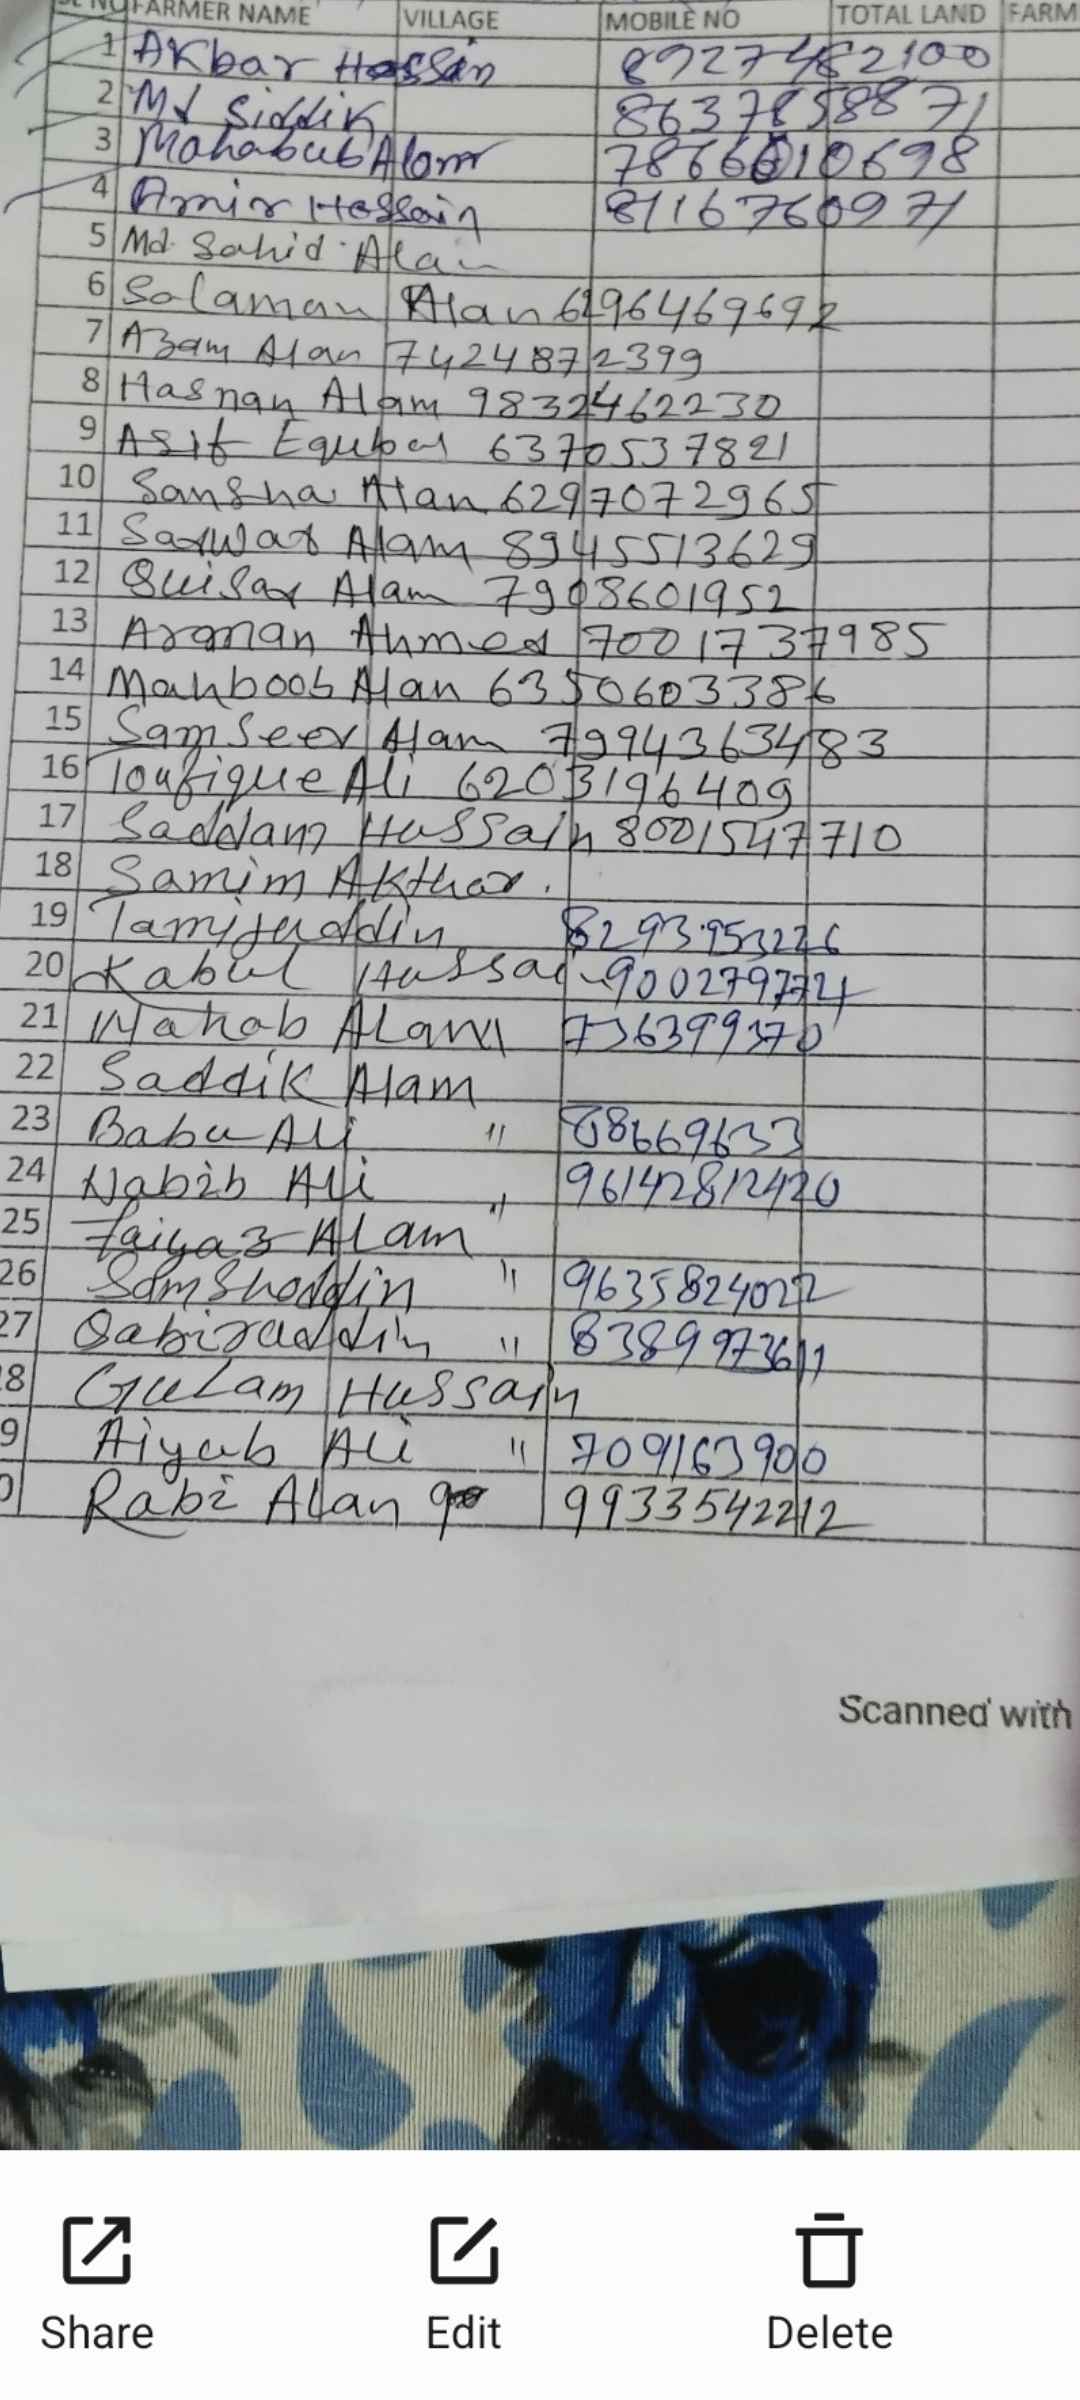 SL NO FARMER NAME VILLAGE MOBILE NO TOTAL LAND FARM
1 Akbar Hossain 8927482100
2 Md Siddik 8637858871
3 Mahabub Alom 7866610698
4 Amir Hossain 8116760971
5 Md Sahid Alam
6 Solaman Alan 6296469692
7 Azam Alan 7424872399
8 Hasnan Alam 9832462230
9 Asif Equbal 6370537821
10 Sansha Alan 6297072965
11 Sarwar Alam 8945513629
12 Quisar Alam 7908601952
13 Arman Ahmed 7001737985
14 Mahboob Alan 6350603386
15 Samseer Alam 7994363483
16 Toufique Ali 6203196409
17 Saddam Hussain 8001547710
18 Samim Akthar.
19 Tamijuddin 8293953226
20 Kabul Hussai 9002797724
21 Mahab Alam 736399370
22 Saddik Alam
23 Babu Ali " 88669633
24 Nabib Ali " 96142812420
25 Faiyaz Alam
26 Samshoddin " 9635824022
27 Qabiraddin " 8389973611
8 Gulam Hussain
9 Aiyub Ali " 709163900
0 Rabi Alan 9933542212
Scanned with
Share Edit Delete